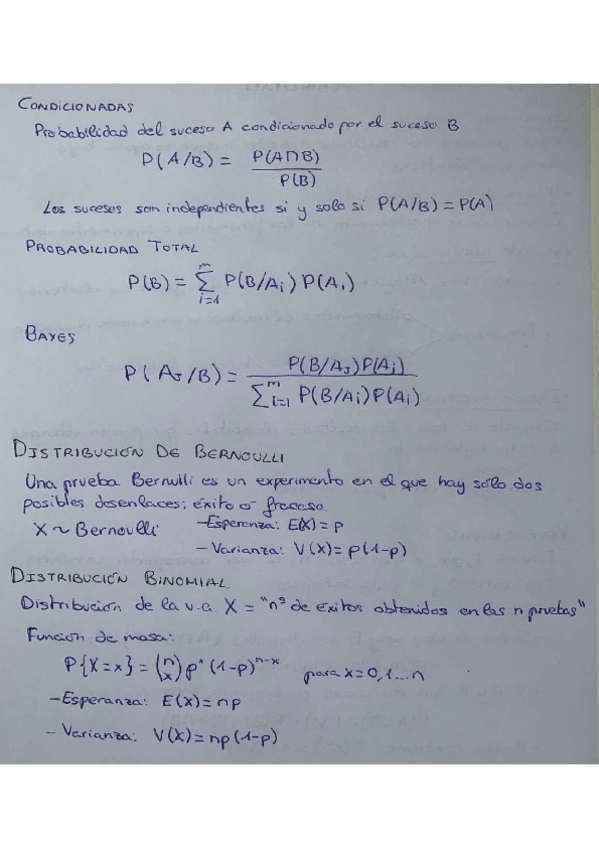 CONDICIONADAS
Probabilidad del suceso A condicionado por el suceso B
P(A/B) = P(A∩B) / P(B)
Los sucesos son independientes si y solo si P(A/B) = P(A)
PROBABILIDAD TOTAL
P(B) = ∑_{i=1}^{m} P(B/A_i) P(A_i)
BAYES
P(A_J/B) = P(B/A_J)P(A_j) / ∑_{i=1}^{m} P(B/A_i)P(A_i)
DISTRIBUCIÓN DE BERNOULLI
Una prueba Bernulli es un experimento en el que hay solo dos
posibles desenlaces: éxito o fracaso.
X ~ Bernoulli - Esperanza: E(X) = p
- Varianza: V(X) = p(1-p)
DISTRIBUCIÓN BINOMIAL
Distribución de la v.a. X = "nº de éxitos obtenidos en las n pruebas"
Función de masa:
P{X=x} = (n x) p^x (1-p)^{n-x} para x=0,1...n
- Esperanza: E(X) = np
- Varianza: V(X) = np(1-p)